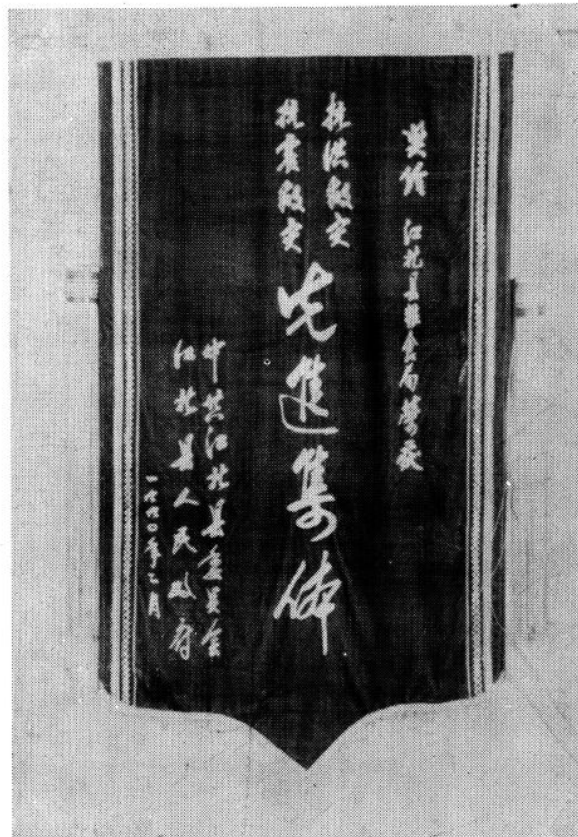 奖给 江北县粮食局荣获
抗洪救灾
抗震救灾
先進集体
中共江北县委员会
江北县人民政府
一九九〇年二月